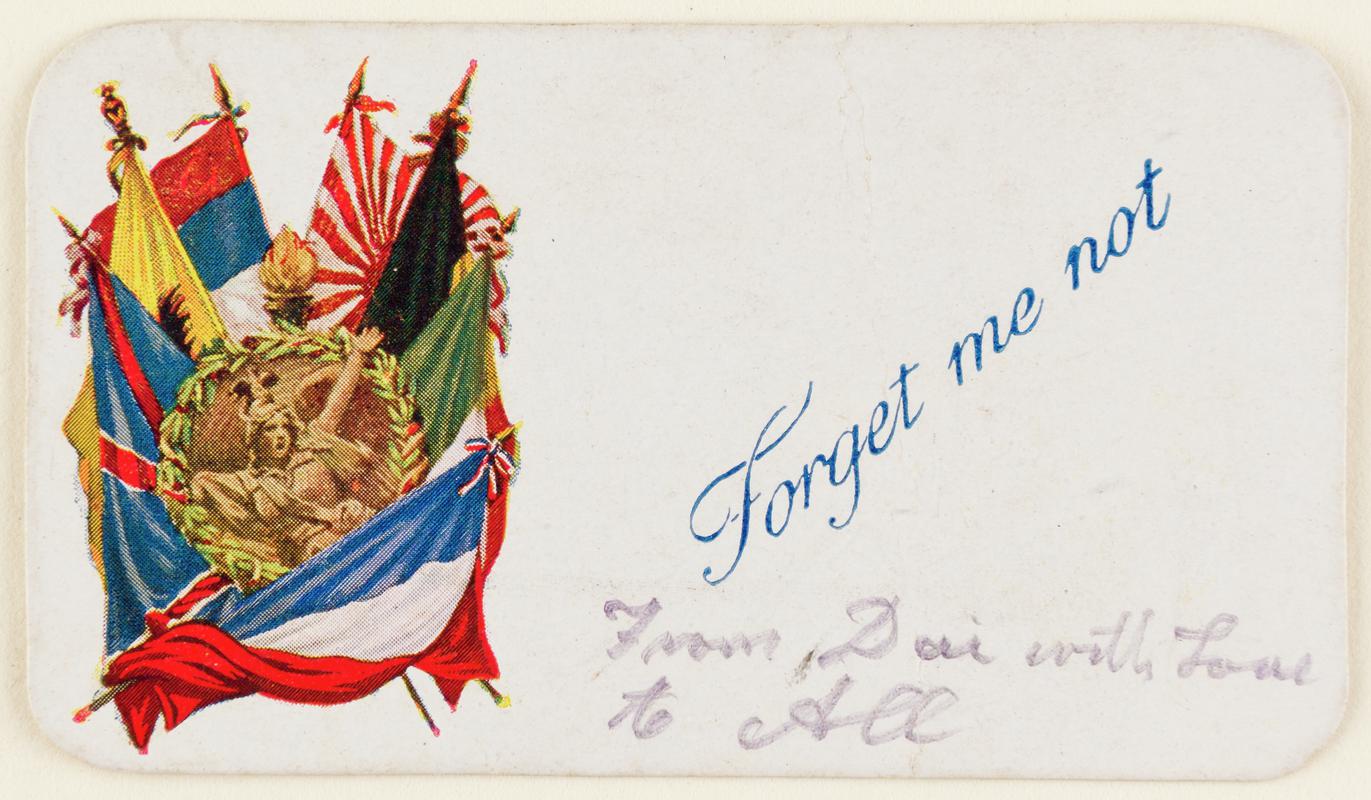 Forget me not
From Dai with Love
to All